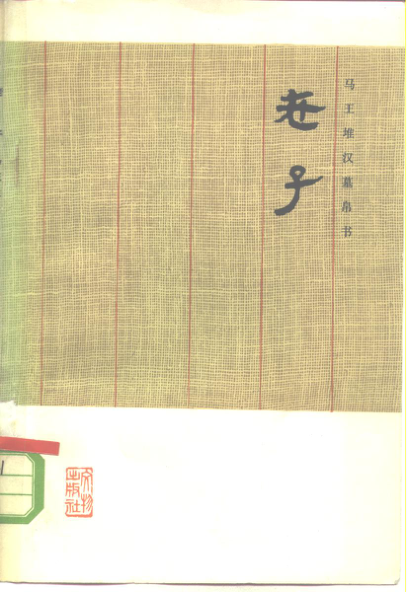 马王堆汉墓帛书
老子
文物
出版社
1